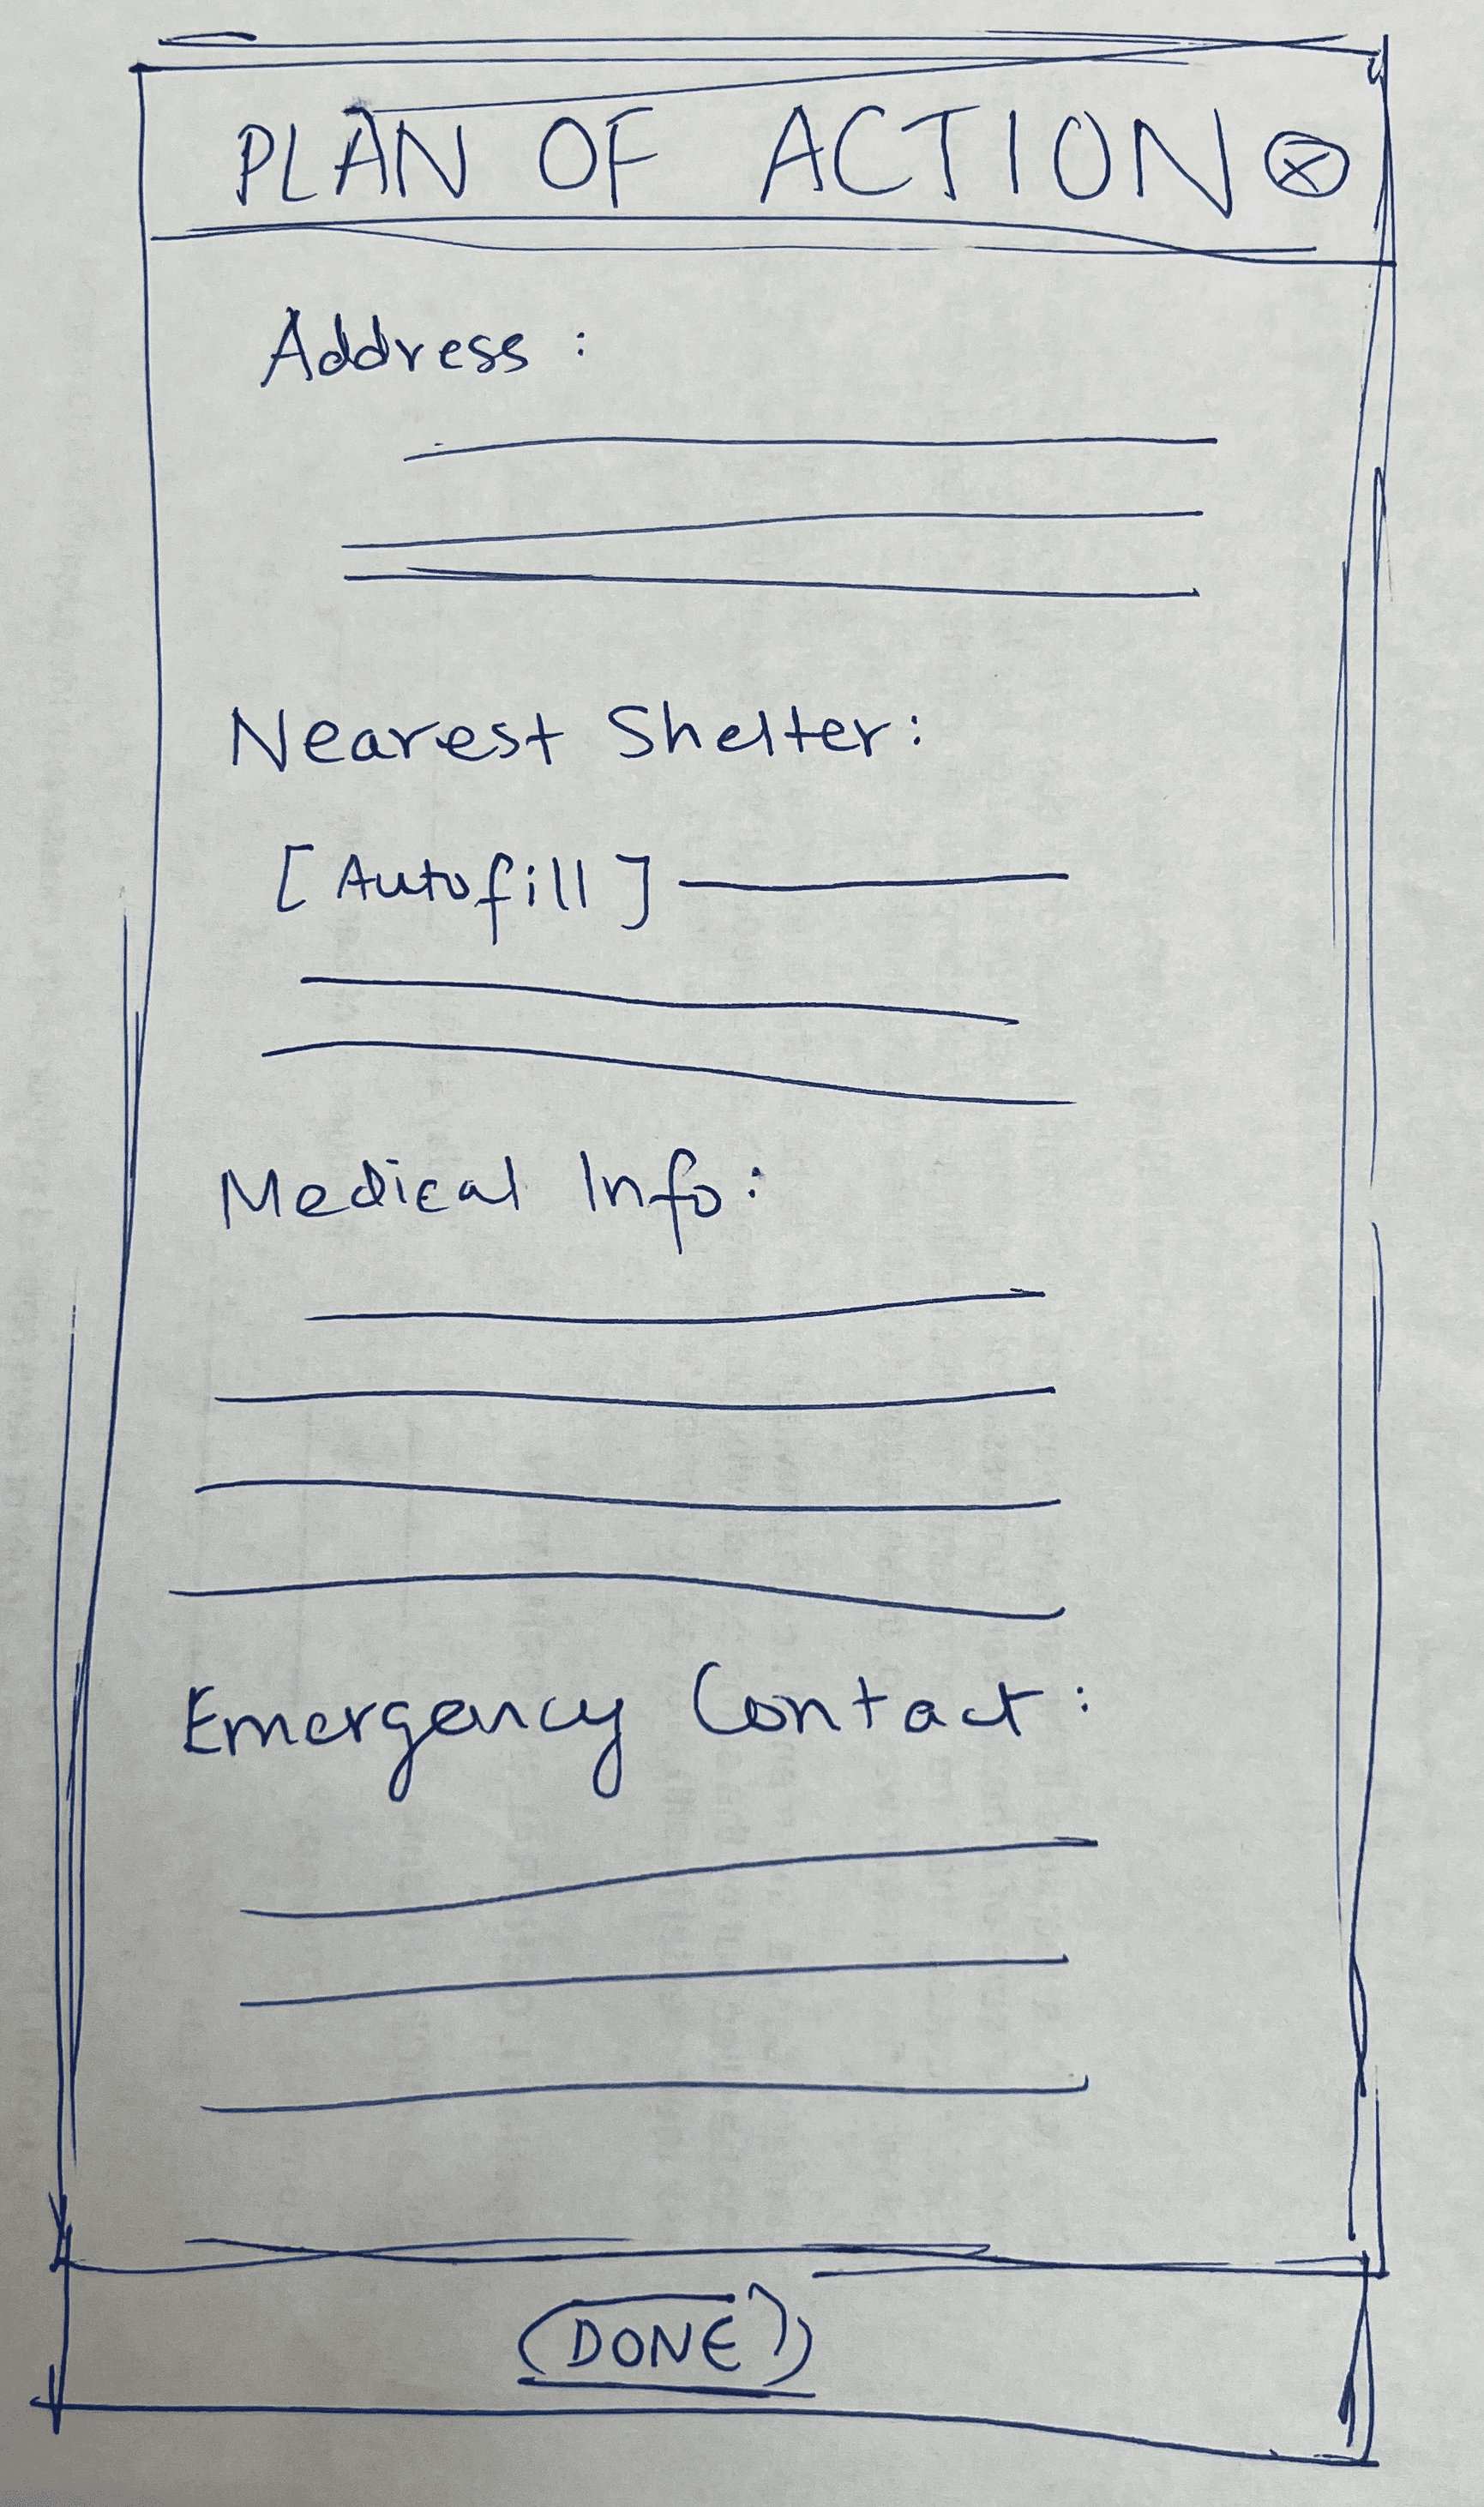 PLAN OF ACTION ⓧ
Address :
Nearest Shelter:
[Autofill]
Medical Info:
Emergency Contact:
DONE